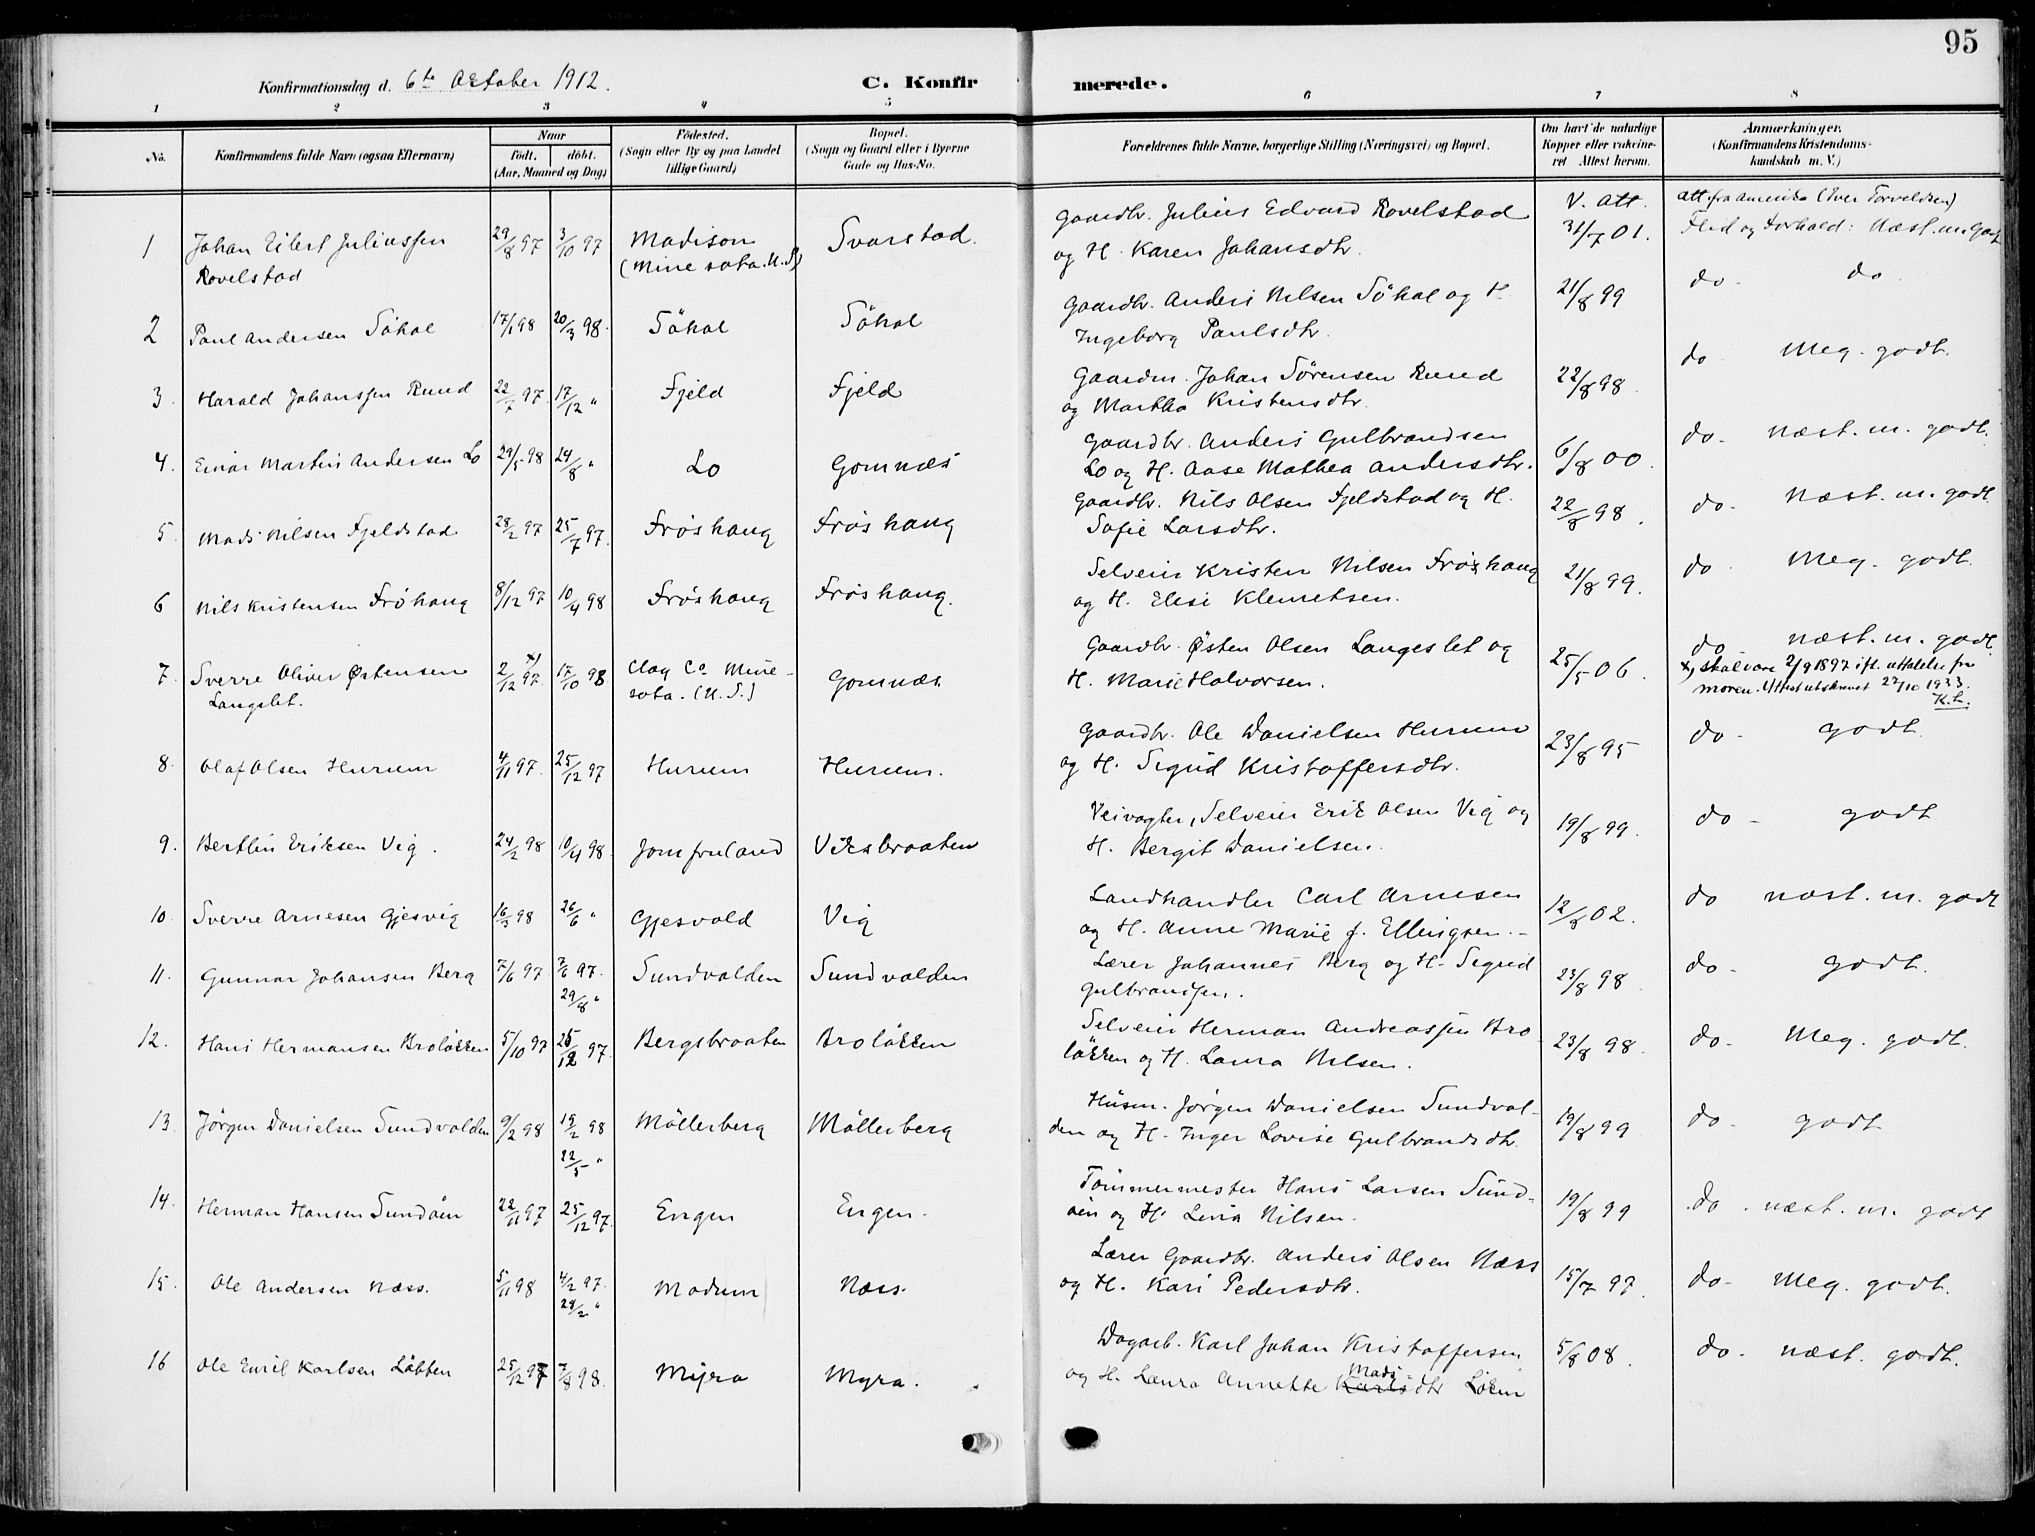 95
Konfirmationsdag d. 6te October 1912.
C. Konfirmerede.
1 2 3 4 5 6 7 8
No.
Konfirmandens fulde Navn (ogsaa Efternavn)
Naar
født. døbt.
(Aar, Maaned og Dag)
Fødested.
(Sogn eller By og paa Landet
tillige Gaard)
Bopæl.
(Sogn og Gaard eller i Byerne
Gade og Hus-No.
Forældrenes fulde Navne, borgerlige Stilling (Næringsvei) og Bopæl.
Om havt de naturlige
Kopper eller vakcine-
ret Attest herom.
Anmærkninger.
(Konfirmandens Kristendoms-
kundskab m. V.)
1 Johan Eilert Juliussen 29/8 97 3/10 97 Madison Svarstad. Gaardbr. Julius Edvard Rovelstad V. att. att fra Amerika (Iver Torveldsen)
Rovelstad (Minesota. U.S.) og H. Karen Johansdtr. 31/7 01. Flid og Forhold: Næst. m. godt
2 Paul Andersen Søhol 17/1 98 20/3 98. Søhol Søhol Gaardbr. Anders Nilsen Søhol og H. 21/8 99 do - do
Ingeborg Paulsdtr.
3. Harald Johanssen Rund 22/7 97 17/12 " Fjeld Fjeld Gaardm. Johan Sørensen Rund 22/8 98. do Meg. godt.
og Martha Kristensdtr.
4. Einar Martin Andersen Lo 29/5 98 24/8 " Lo Gomnæs Gaardbr. Anders Gulbrandsen 6/8 00. do - næst. m. godt.
Lo og H. Aase Mathea Andersdtr.
5. Mads Nilsen Fjeldstad 28/2 97 25/7 97. Frøshaug Frøshaug Gaardbr. Nils Olsen Fjeldstad og H. 22/8 98. do - næst. m. godt
Sofie Larsdtr.
6 Nils Kristensen Frøhaug 8/12 97 10/4 98 Frøshaug Frøshaug. Selveier Kristen Nilsen Frøshaug 21/8 99. do Meg. godt.
og H. Elise Klemetsen.
7. Sverre Oliver Østensen 2/12 97 x) 17/10 98 Clay Co Mine- Gomnæs Gaardbr. Østen Olsen Langeslet og 25/5 06. do næst. m. godt
Langslet. sota. (U.S.) H. Marie Halvorsen. x, skal være 2/9 1897 ifl. uttalelse fra
moren. Attest utskrevet 27/10 1933.
K.L.
8. Olaf Olsen Hurum 4/11 97. 25/12 97 Hurum Hurum. Gaardbr. Ole Danielsen Hurum 23/8 95 do - godt.
og H. Sigrid Kristoffersdtr.
9. Bertlin Eriksen Vig. 24/2 98 10/4 98. Jomfruland Viksbraaten Veivogter, Selveier Erik Olsen Vig og 19/8 99. do - godt
H. Bergit Danielsen.
10. Sverre Arnesen Gjesvig 16/3 98 26/6 " Gjesvold Vig Landhandler Carl Arnesen 12/8 02. do næst. m. godt
og H. Anne Marie f. Ellingsen. -
11. Gunnar Johansen Berg 7/6 97 7/6 97. Sundvolden Sundvolden Lærer Johannes Berg og H. Sigrid 23/8 98 do - godt.
29/8 " Gulbrandsen.
12. Hans Hermansen Broløkken 5/10 97 25/12 97. Bergsbraaten Broløkken Selveier Herman Andreassen Bro- 23/8 98. do - Meg. godt.
løkken og H. Laura Nilsen.
13. Jørgen Danielsen Sundvolden 9/2 98 19/2 98 Møllerberg Møllerberg Husm. Jørgen Danielsen Sundvol- 19/8 99 do - godt
22/5 " den og H. Inger Lovise Gulbrandsdtr.
14. Herman Hansen Sundøen 22/11 97 25/12 97. Engen Engen. Tømmermester Hans Larsen Sund- 19/8 99 do - næst. m. godt
øen og H. Lina Nilsen.
15. Ole Andersen Næss. 5/11 98 4/2 97. Modum Næss. Lærer Gaardbr. Anders Olsen Næss 15/7 97. do - Meg. godt.
28/2 " og H. Kari Pedersdtr.
16 Ole Emil Karlsen Løbben 25/12 97 7/8 98. Myra Myra. Dagarb. Karl Johan Kristoffersen 5/8 08. do - næst. godt.
Mads
og H. Laura Annette Karlsdtr Løken